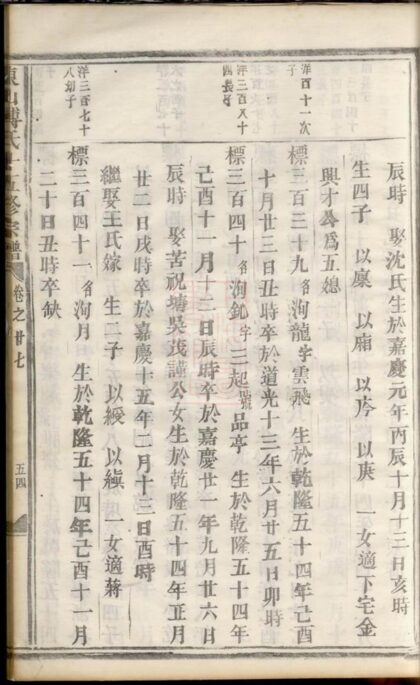 辰時 娶沈氏生於嘉慶元年丙辰十月十三日亥時
生四子 以廩 以廂 以庈 以庚 一女適下宅金
興才公爲五媳
洋百十一次子
標三百三十九名洵龍字雲飛 生於乾隆五十四年己酉
十月廿三日丑時卒於道光十三年六月廿五日卯時
洋三百八十四長子
標三百四十名洵釚字三起號品亭 生於乾隆五十四年
己酉十一月十三日辰時卒於嘉慶廿一年九月廿六日
辰時 娶苦祝塘吳茂謹公女生於乾隆五十四年正月
廿二日戌時卒於嘉慶十五年二月十三日酉時
繼娶王氏嫁 生二子 以緩 以 一女適蔣
洋三百七十八幼子
標三百四十一名洵月 生於乾隆五十四年己酉十一月
二十日丑時卒缺
東山 氏十五修宗譜 卷之廿七 五四